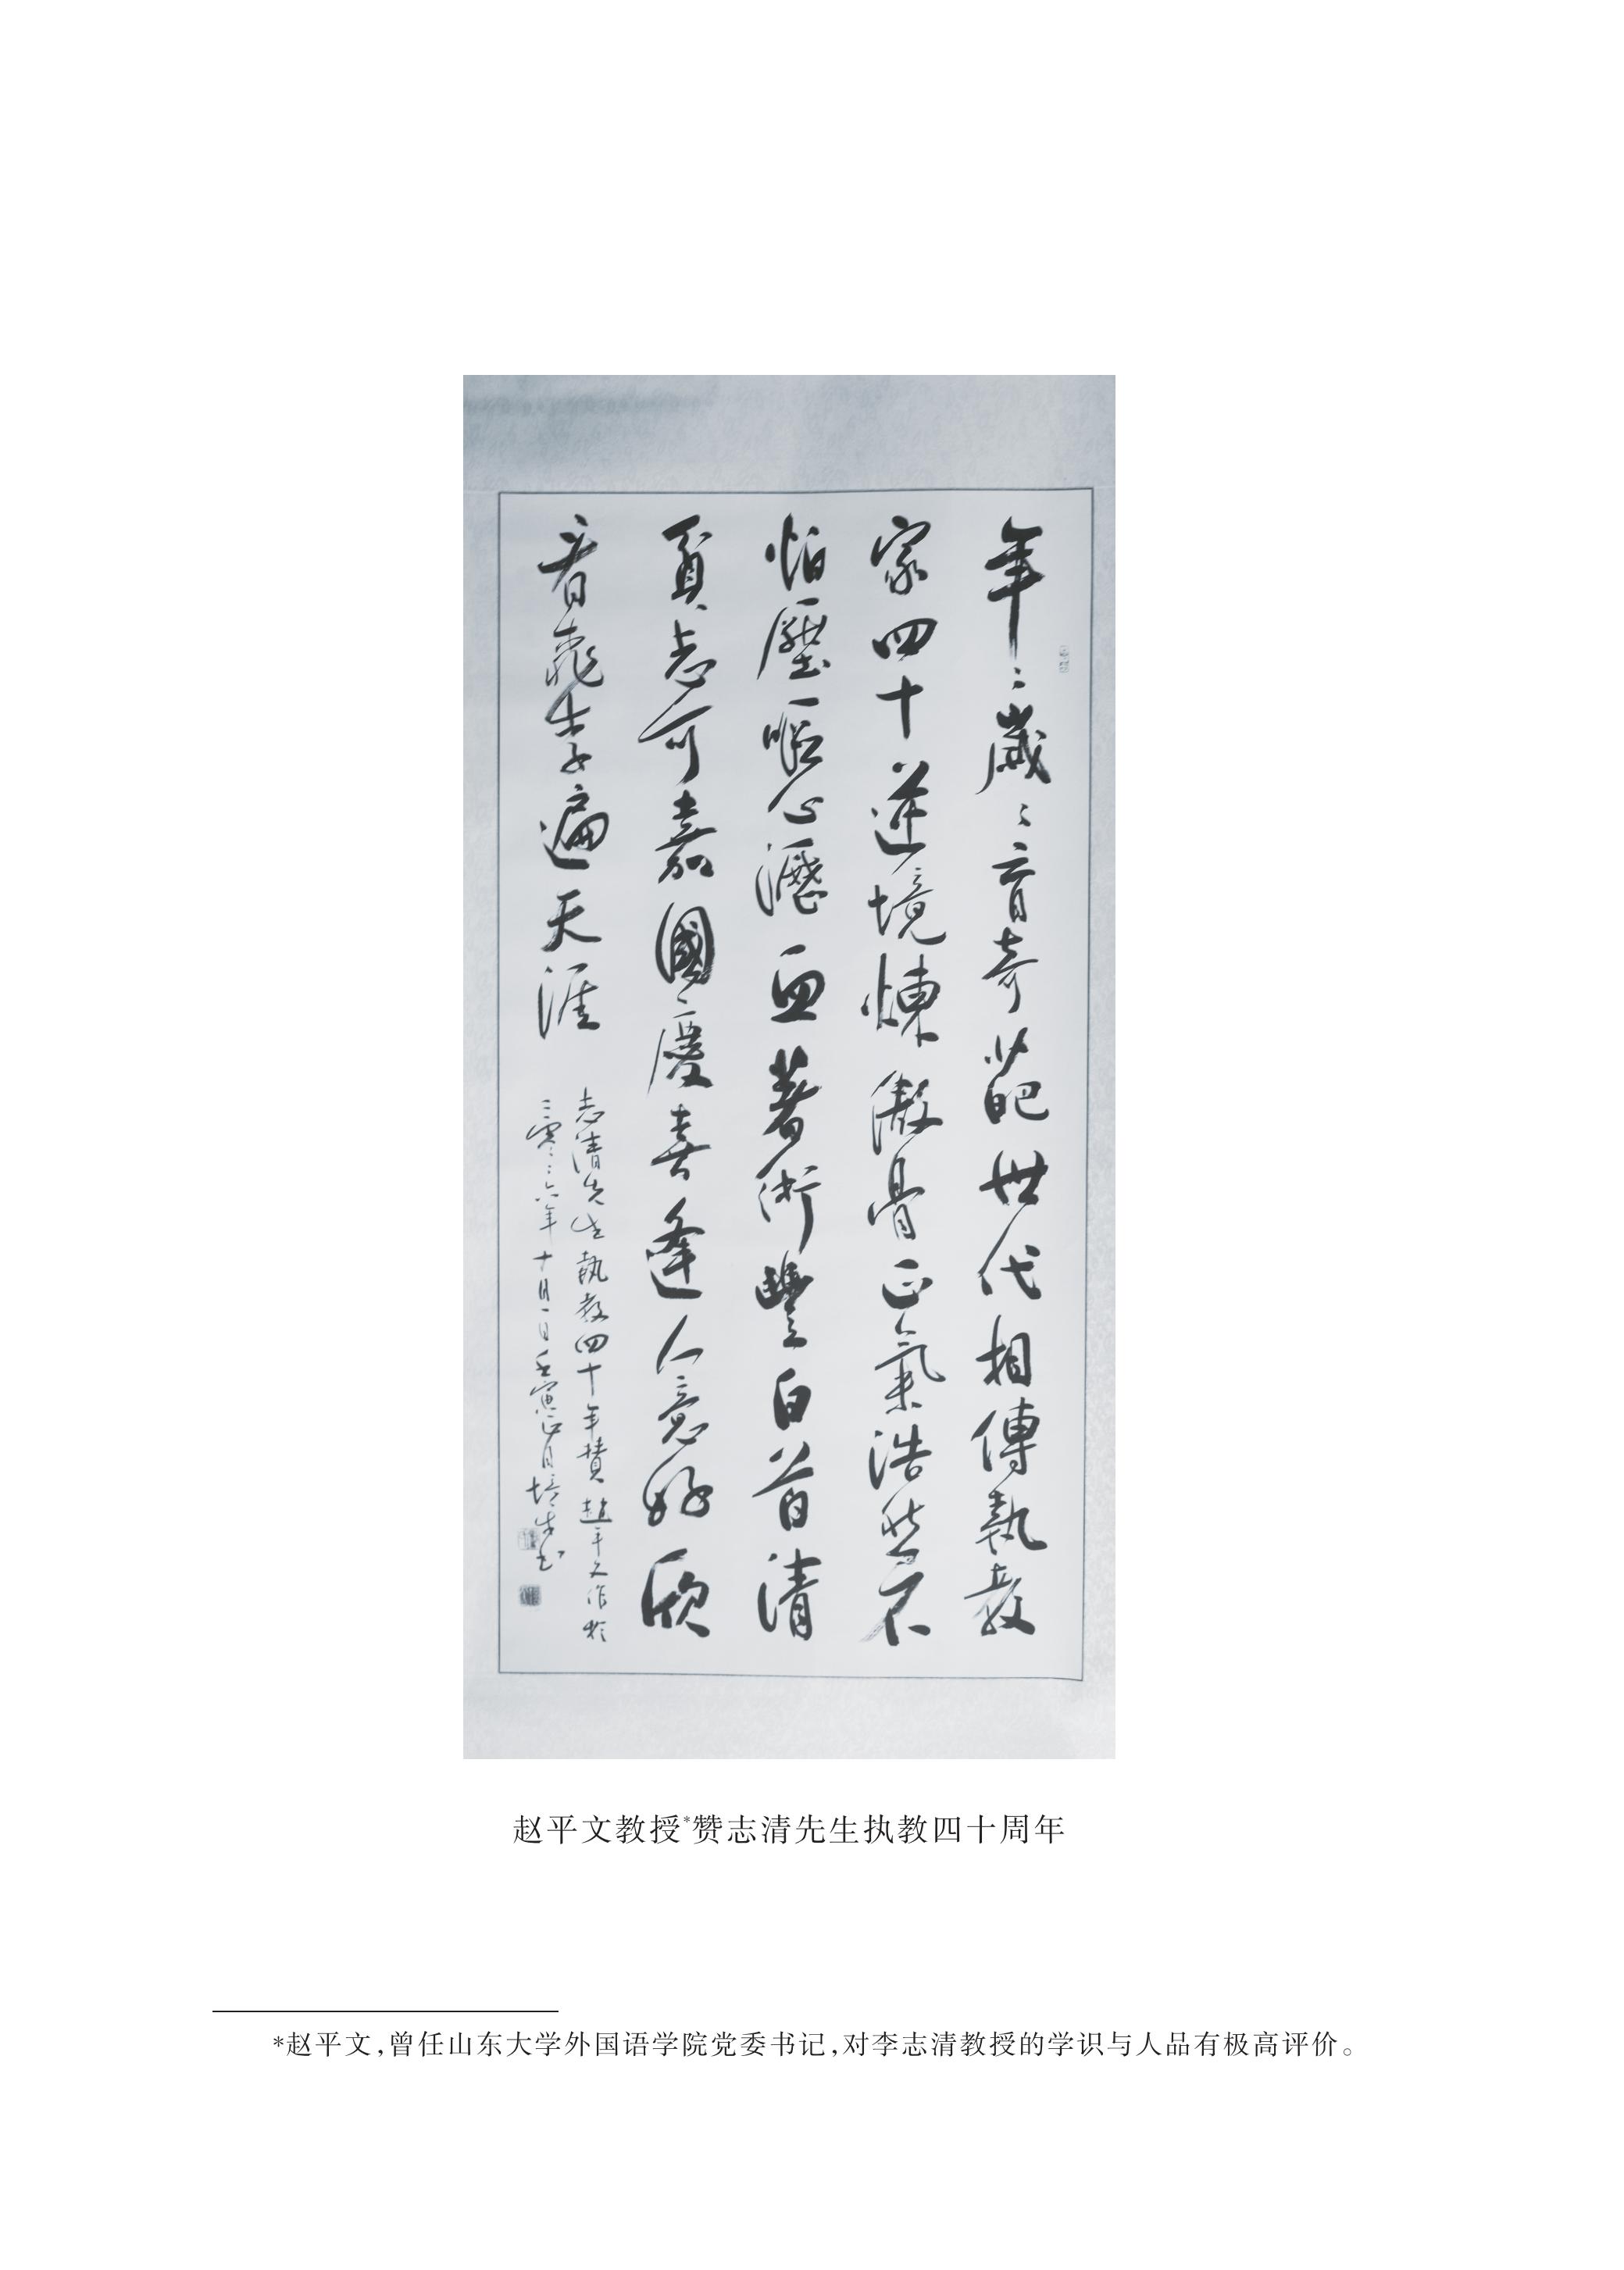 年〻歲〻育奇葩世代相傳執教
家四十逆境煉傲骨正氣浩然不
怕壓嘔心瀝血著術豐白首清
貧志可嘉國慶喜逢人意好欣
看桃李遍天涯
志清先生執教四十年贊 趙平文作於
二零〻六年十月一日壬寅正月培生書
赵平文教授*赞志清先生执教四十周年
*赵平文,曾任山东大学外国语学院党委书记,对李志清教授的学识与人品有极高评价。